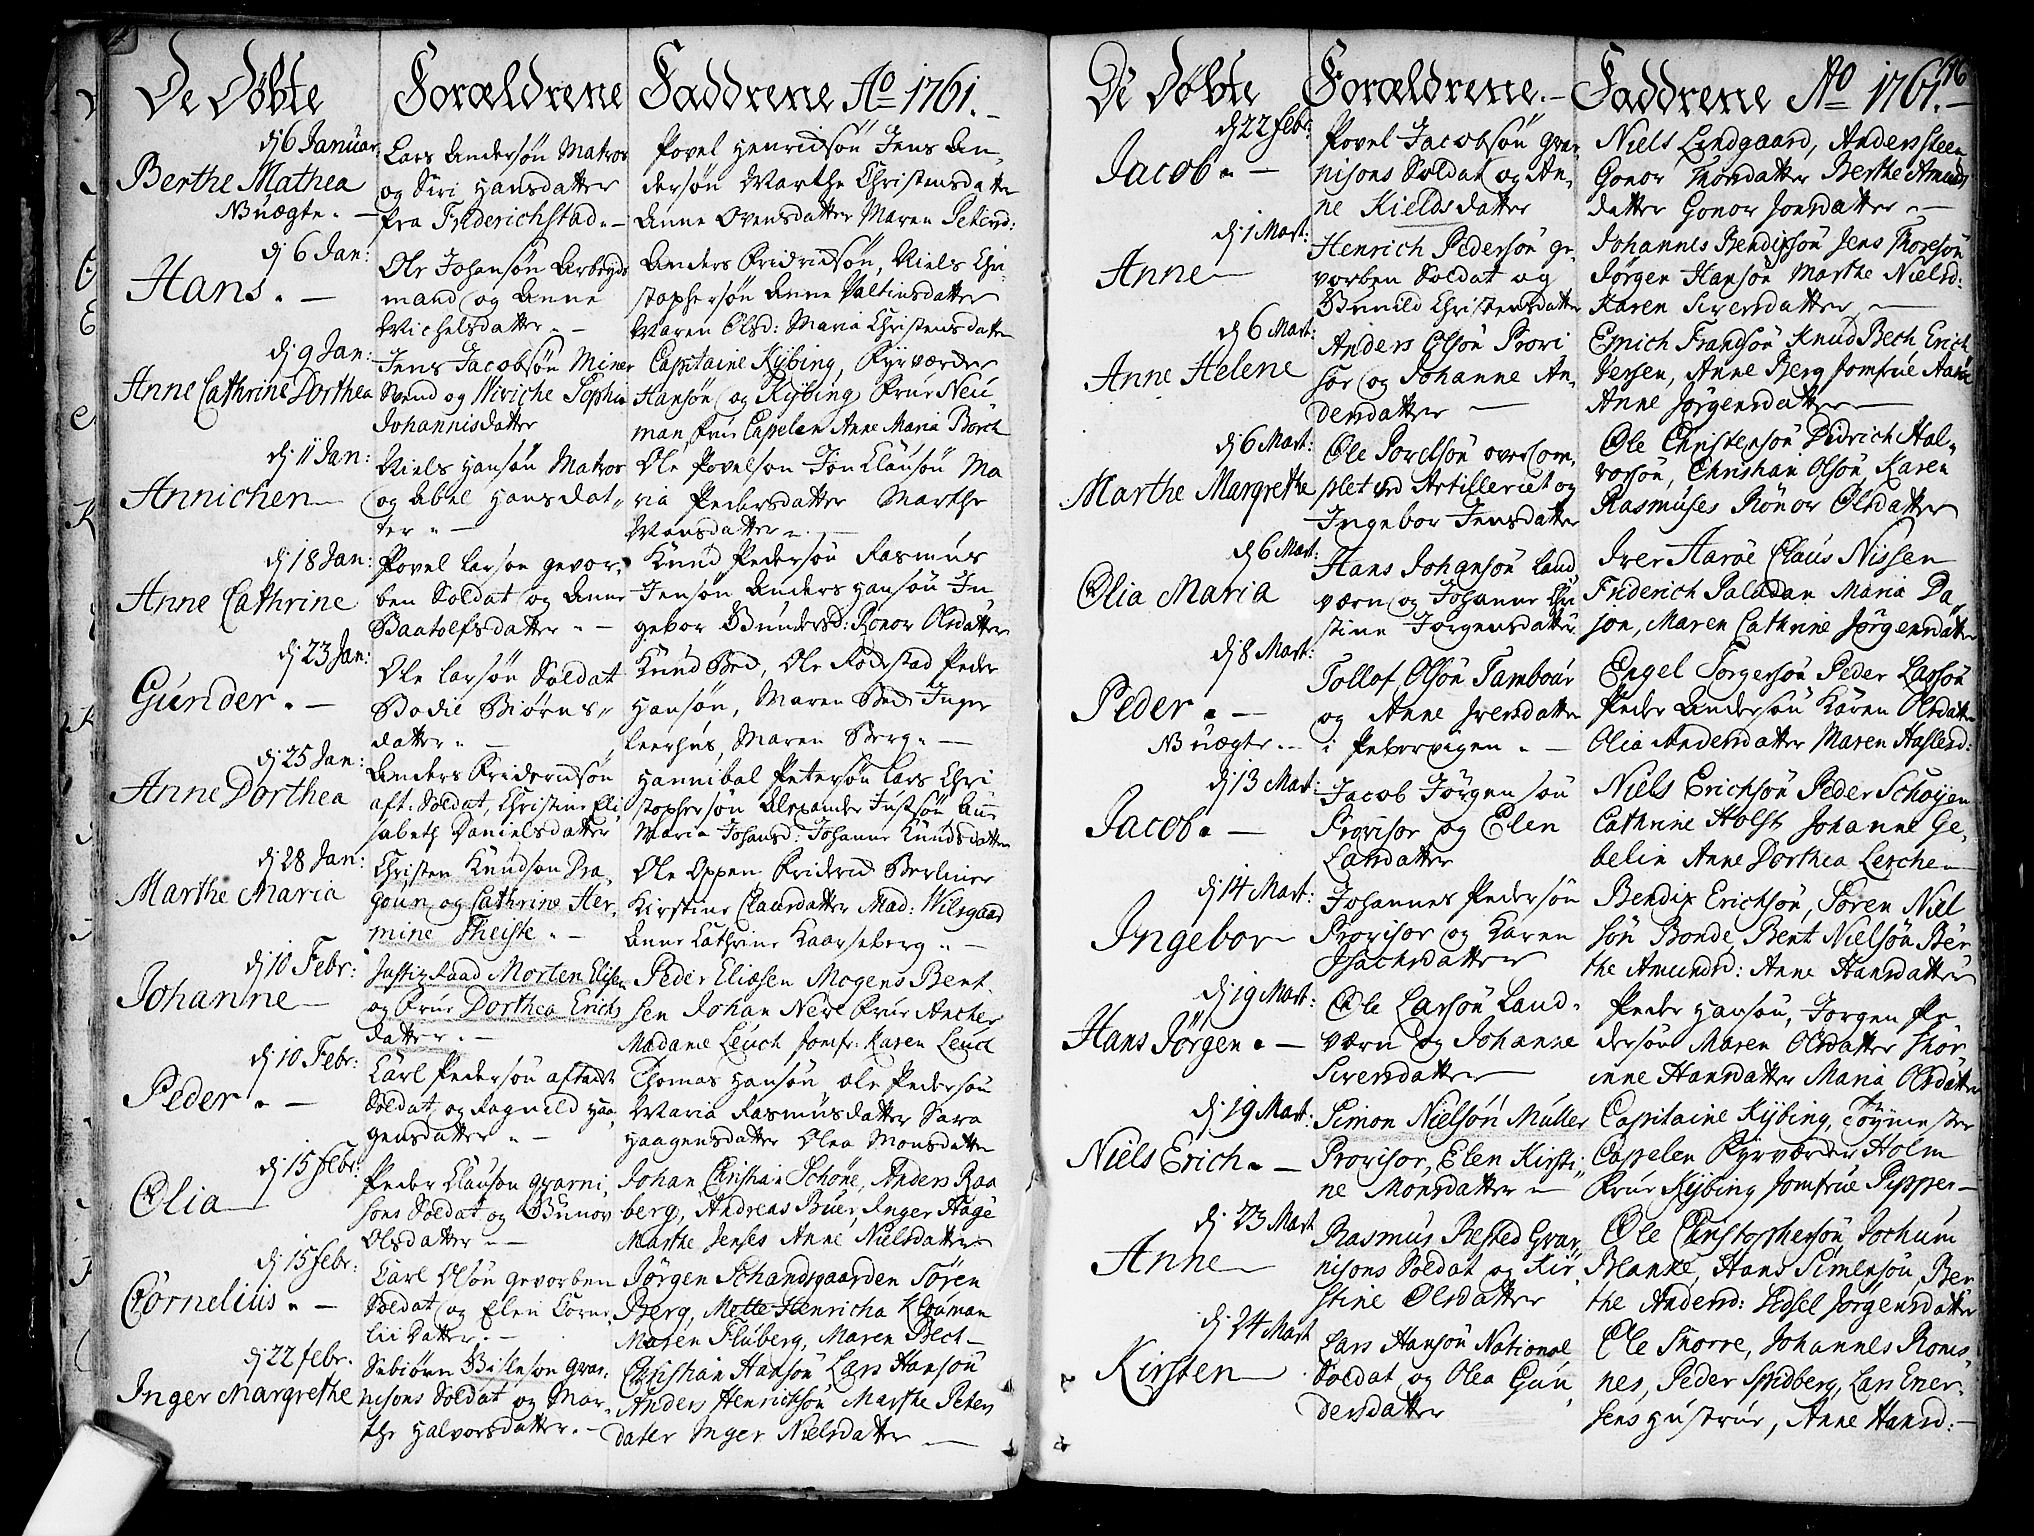 De Døbte Forældrene Faddrene Ao 1761.
dj 6 Januar
Berthe Mathea
NB uægte.
Lars Andersøn Matros
og Siri Hansdatter
fra Friderichstad
Povel Henrichsøn Jens An
dersøn Marthe Christensdatter
Anne Ovensdatter Maren Petersd:
dj 6 Jan:
Hans.
Ole Johansøn Arbeyds
mand og Anne
Michelsdatter
Anders Fridrichsøn, Niels Chri
stophersøn Anne Valtinsdatter
Maren Olsd: Maria Christensdatter
dj 9 Jan:
Anne Cathrine Dorthea
Jens Jacobsøn Miner
Svend og Sophia
Johannisdatter
Capitaine Kybing, Fyrværcker
Hansøn og Kybing Frue Neu
man Frue Cappelen Anne Maria Borch
dj 11 Jan:
Annichen
Niels Hansøn Matros
og Abel Hansdat
ter
Ole Povelsøn Jon Clausøn Ma
ria Pedersdatter Marthe
Monsdatter
dj 18 Jan:
Anne Cathrine
Povel Larsøn gevor
ben Soldat og Anne
Baatolfsdatter
Knud Pedersøn Rasmus
Jensøn Anders Hansøn In
gebor Gundersd: Ronor Olsdatter
dj 23 Jan:
Gunder.
Ole Larsøn Soldat
Bodil Biørns
datter
Knud Bech, Ole Rodestad Peder
Hansøn, Maren Bech Inger
Leerhus, Maren Berg
dj 25 Jan:
Anne Dorthea
Anders Friderichsøn
aft. Soldat, Christine Eli
sabeth Danielsdatter
Hannibal Petersøn Lars Chri
stophersøn Alexander Justsøn Anne
Maria Johansd: Johanne Knudsdatter
dj 28 Jan:
Marthe Maria
Christen Knudsøn Dra
goun og Cathrine Her
mine Theiste
Ole Oppen Friderich Berliner
Kirstine Clausdatter Mad: Wilsgaard
Anne Cathrine Kaarseberg
dj 10 Febr:
Johanne
Justiz Raad Morten Elisen
og Frue Dorthea Erichs
datter
Peder Eliesen Mogens Bent
sen Johan Frue Ancher
Madame Leuch Jomfr: Karen Leuch
dj 10 Febr:
Peder.
Carl Pedersøn aftackt
Soldat og Ragnild Haa
gensdatter
Thomas Hansøn Ole Pedersøn
Maria Rasmusdatter Sara
Haagensdatter Olea Monsdatter
dj 15 febr:
Olia
Peder Clausøn gvarni
sons Soldat og Gunor
Olsdatter
Johan Christian Schøne, Anders Raa
berg, Andreas Buer, Inger Hage
Marthe Jenses Anne Nielsdatter
dj 15 febr:
Cornelius.
Carl Olsøn gevorben
Soldat og Elen Corne
lii Datter
Jørgen Schandsgaarden Søren
Berg, Mette Henricha Klouman
Maren Fluberg, Maren Bech
dj 22 febr.
Inger Margrethe
Gulbiørn gvar
nisons Soldat og Mar
the Halvorsdatter.
Christian Hansøn Lars Hansøn
Anders Henrichsøn Marthe Peters
dater Inger Nielsdatter
De Døbte Forældrene. Faddrene Ao 1761. 16
dj 22 febr:
Jacob.
Povel Jacobsøn gvar
nisons Soldat og An
ne Kieldsdatter
Niels Lindgaard, Anders Steen
Gonor Thorsdatter Berthe Amunds
datter Gonor Jonsdatter
dj 1 Mart:
Anne
Henrich Pedersøn ge
vorben Soldat og
Gunild Christensdatter
Johannes Bendixsøn Jens Thoresøn
Jørgen Hansøn Marthe Nielsd:
Karen Siversdatter
dj 6 Mart:
Anne Helene
Anders Olsøn Provi
sor og Johanne An
dersdatter
Emich Frandsøn Knud Bech Erich
Jensen, Anne Berg Jomfrue
Anne Jørgensdatter
dj 6 Mart:
Marthe Margrethe
Ole Povelsøn overcom
plet ved Artilleriet og
Ingebor Jensdatter
Ole Christensøn Didrich Hal
vorsøn, Christian Olsøn, Karen
Rasmuses Rønor Olsdatter
dj 6 Mart:
Olia Maria
Hans Johansøn Land
værn og Johanne Chri
stine Jørgensdatter
Iver Aarøe Claus Nissen
Friderich Paludan Maria Da
jon, Maren Cathrine Jørgensdatter
dj 8 Mart:
Peder.
NB uægte.
Tollof Olsøn Tambour
og Anne Iversdatter
i Pebervigen
Engel Torgersøn Peder Larsøn
Peder Andersøn Karen Olsdatter
Olia Andersdatter Maren Haslesd:
dj 13 Mart:
Jacob.
Jacob Jørgensøn
Provisor og Elen
Larsdatter
Niels Erichsøn Peder Schøyen
Cathrine Holst Johanne Ge
belin Anne Dorthea Lerche
dj 14 Mart:
Ingebor
Johannes Pedersøn
Provisor og Karen
Isachsdatter
Bendix Erichsøn, Søren Niel
søn Bonde, Bent Nielsøn Ber
the Amundsd: Anne Hansdatter
dj 19 Mart:
Hans Jørgen.
Ole Larsøn Land
værn og Johanne
Siversdatter
Peder Hansøn, Jørgen Pe
dersøn Maren Olsdatter Thor
inne Hansdatter Maria Olsdatter
dj 19 Mart:
Niels Erich.
Simon Nielsøn Müller
Provisor, Elen Kirsti
ne Monsdatter
Capitaine Kybing, Tøymester
Cappelen Fyrværcker Holm
Frue Kybing Jomfrue Pipper
dj 23 Mart
Anne
Rasmus Rested Gvar
nisons Soldat og Kir
stine Olsdatter
Ole Christophersøn Jochum
Blanke, Hans Simensøn, Ber
the Andersd: Sidsel Jørgensdatter
dj 24 Mart
Kirsten
Lars Hansøn National
Soldat og Olea Gun
dersdatter
Ole Snorre, Johannes Roms
nes, Peder Stridberg, Lars Ener
sens Hustrue, Anne Hansd: